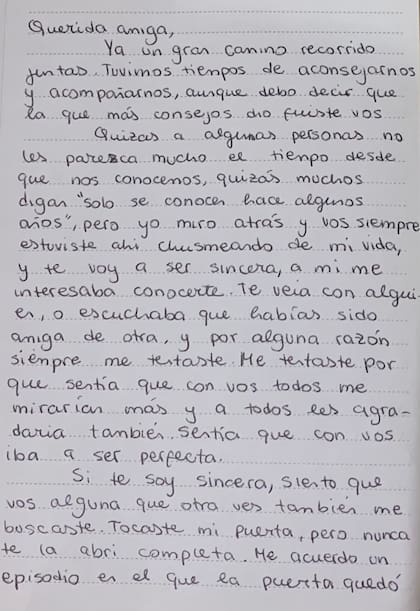 Querida amiga,
Ya un gran camino recorrido
juntas. Tuvimos tiempos de aconsejarnos
y acompañarnos, aunque debo decir que
la que más consejos dio fuiste vos
Quizás a algunas personas no
les parezca mucho el tiempo desde
que nos conocemos, quizás muchos
digan "solo se conocen hace algunos
años", pero yo miro atrás y vos siempre
estuviste ahi chusmeando de mi vida,
y te voy a ser sincera, a mi me
interesaba conocerte. Te veía con algui-
en, o escuchaba que habías sido
amiga de otra, y por alguna razón
siempre me tentaste. Me tentaste por
que sentía que con vos todos me
mirarían más y a todos les agra-
daria también. Sentía que con vos
iba a ser perfecta.
Si te soy sincera, siento que
vos alguna que otra ves también me
buscaste. Tocaste mi puerta, pero nunca
te la abri completa. Me acuerdo un
episodio en el que la puerta quedó